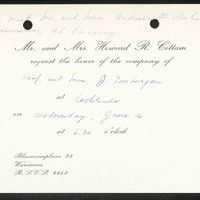 to meet Mr. and Mrs. Andrew
Mr. and Mrs. Howard R. Cottam
request the honor of the company of
Prof. and Mrs. J. Tinbergen
at Cocktails
on Wednesday, June 16
at 6:30 o'clock
Wassenaar
R.S.V.P.